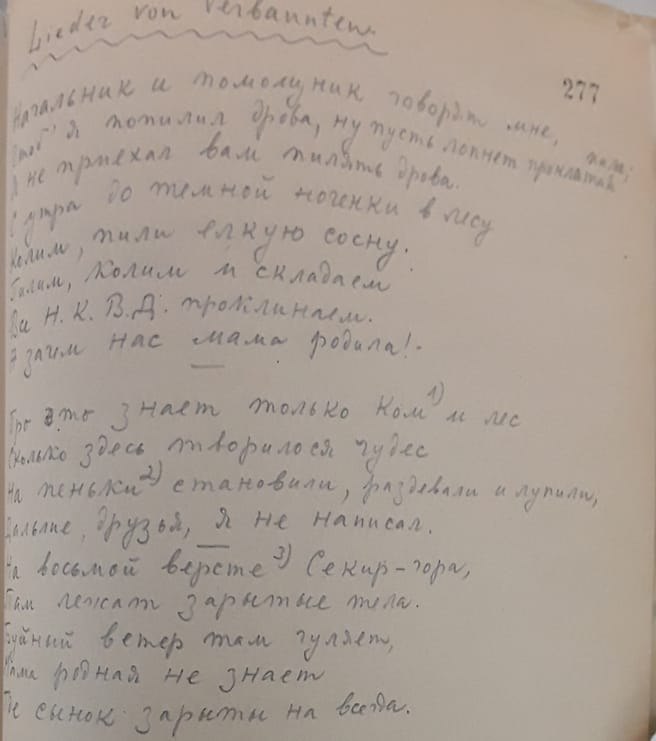 Lieder von Verbannten.
277
Начальник и помощник говорят мне,
Чтоб' я попилил дрова, ну пусть лопнет проклятая пила;
Я не приехал вам пилять дрова.
С утра до темной ноченки в лесу
Колим, пили елкую сосну.
Пилим, колим и складаем
Н.К.В.Д. проклинаем.
А зачем нас мама родила!
Про это знает только Ком 1) и лес
Сколько здесь творилося чудес
На пеньки 2) становили, раздевали и лупили,
Дальше, друзья, я не написал.
На восьмой версте 3) Секир-гора,
Там лежат зарытые тела.
Буйный ветер там гуляет,
Мама родная не знает
Где сынок зарыты на всегда.